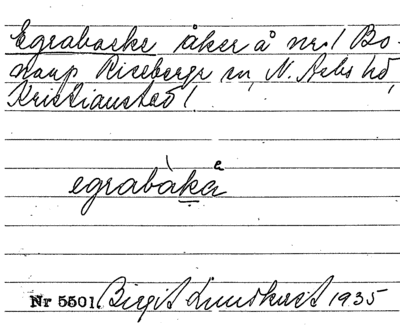 Egrabacke åker å nr 1 Bo-
narp Riseberga sn, N. Åsbo hd,
Kristianstad l
egrabàkа
Nr 5501. Birgit Lundkvist 1935